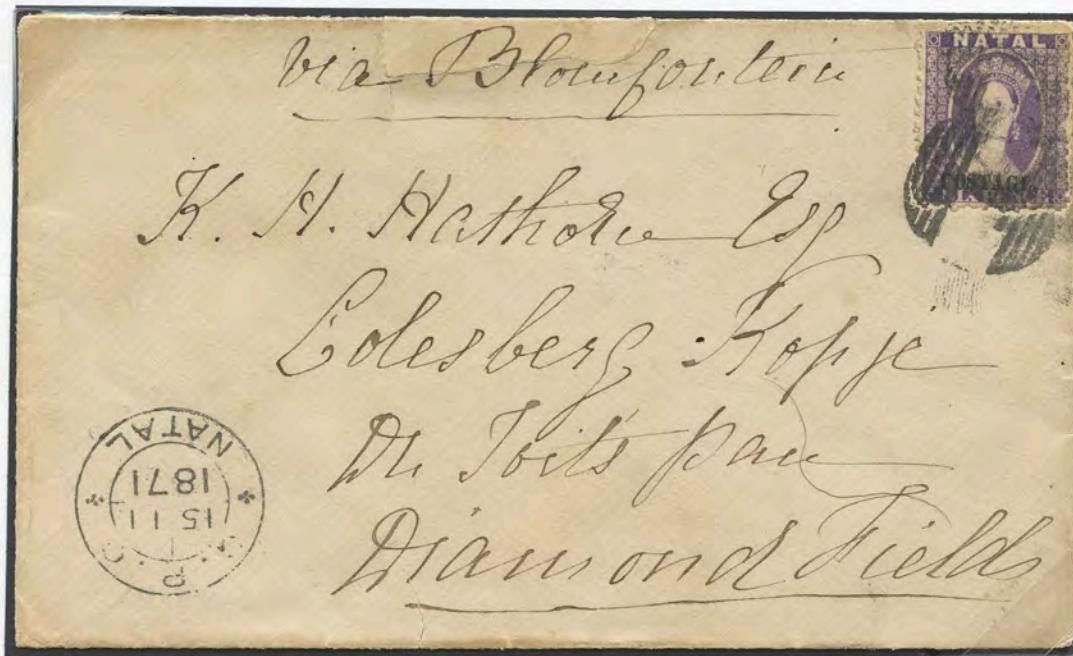 via Blomfontein
NATAL
POSTAGE
K. H. Hathorn Esq
Colesberg Kopje
Du Toit's pan
Diamond Fields
G.P.O.
NATAL
15 11
1871